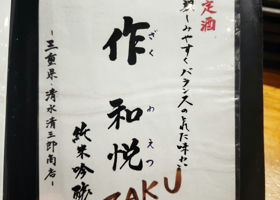 定酒
親しみやすくバランスのとれた味わい
作 和悦
ざく わえつ
純米吟醸
-三重県・清水清三郎商店-
ZAKU